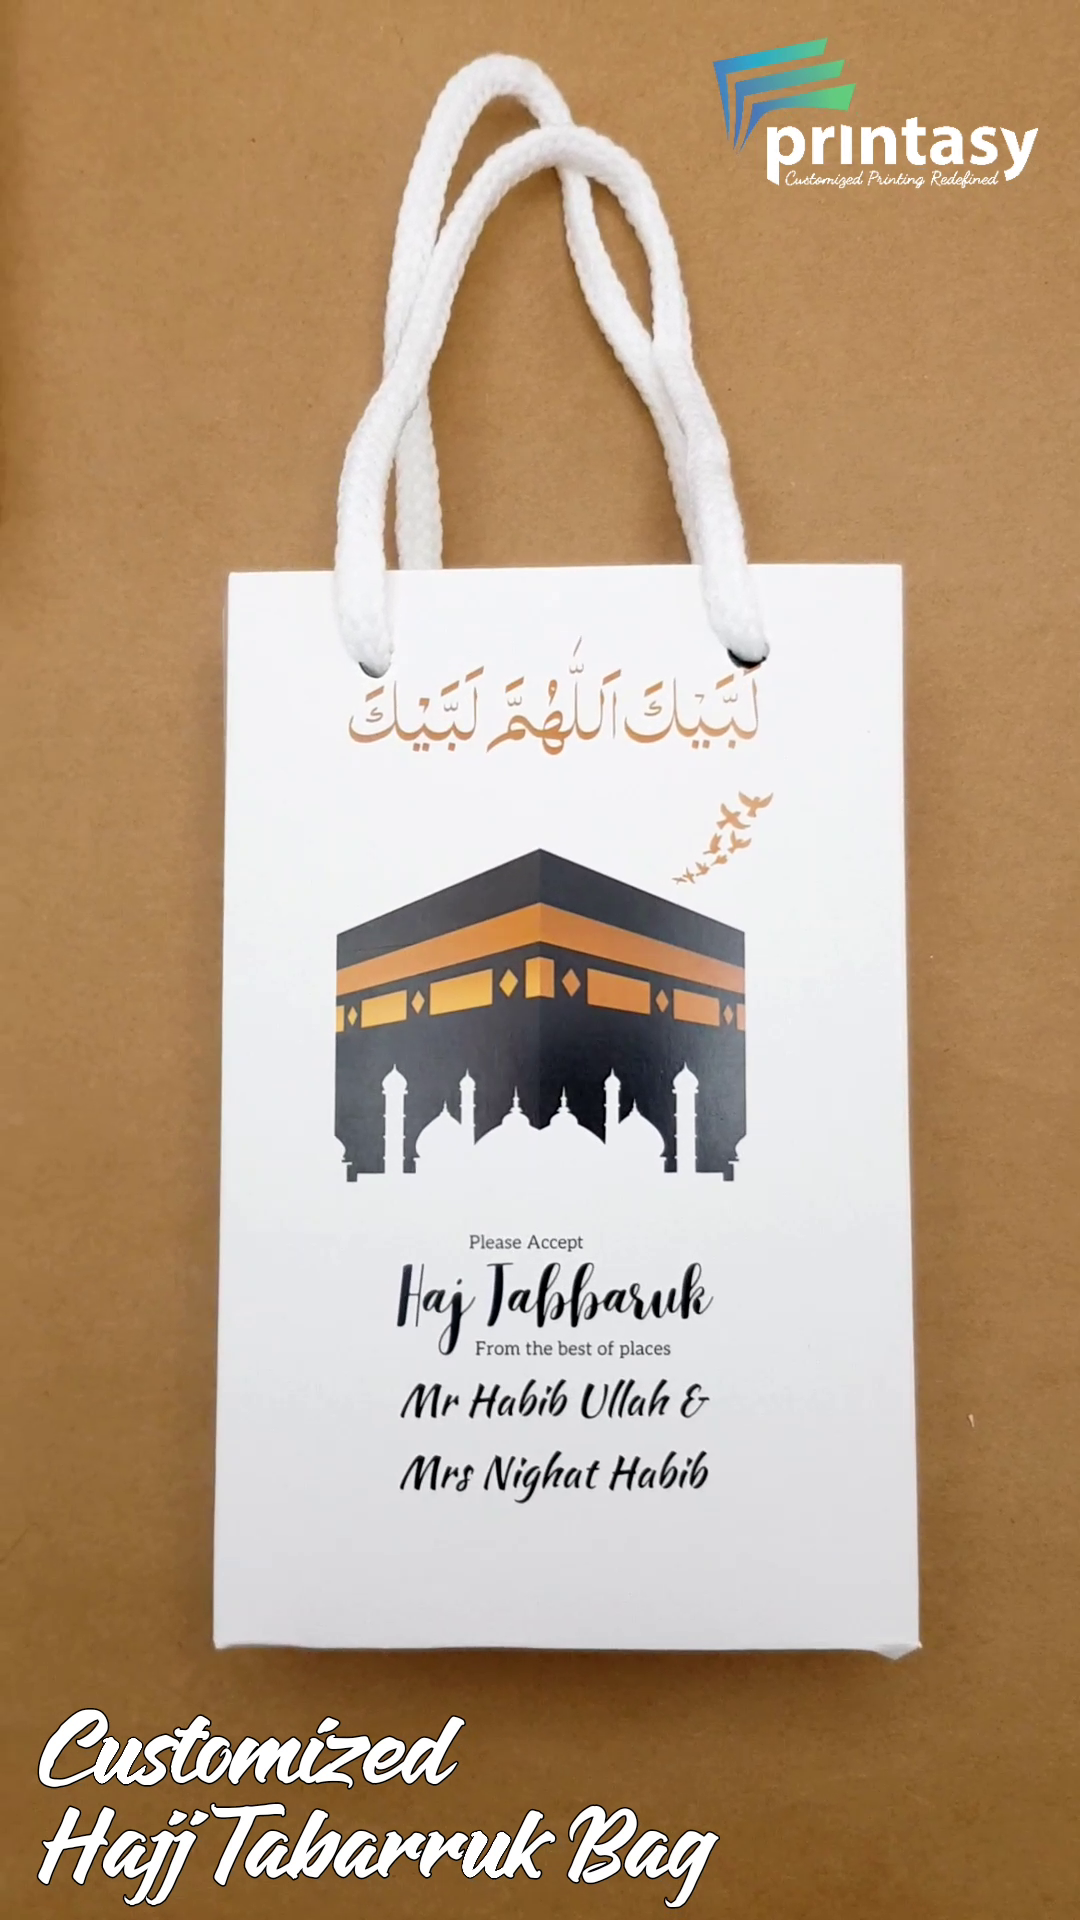 printasy
Customized Printing Redefined
لَبَّيْكَ اَللّٰهُمَّ لَبَّيْكَ
Please Accept
Haj Tabbaruk
From the best of places
Mr Habib Ullah &
Mrs Nighat Habib
Customized
Hajj Tabarruk Bag